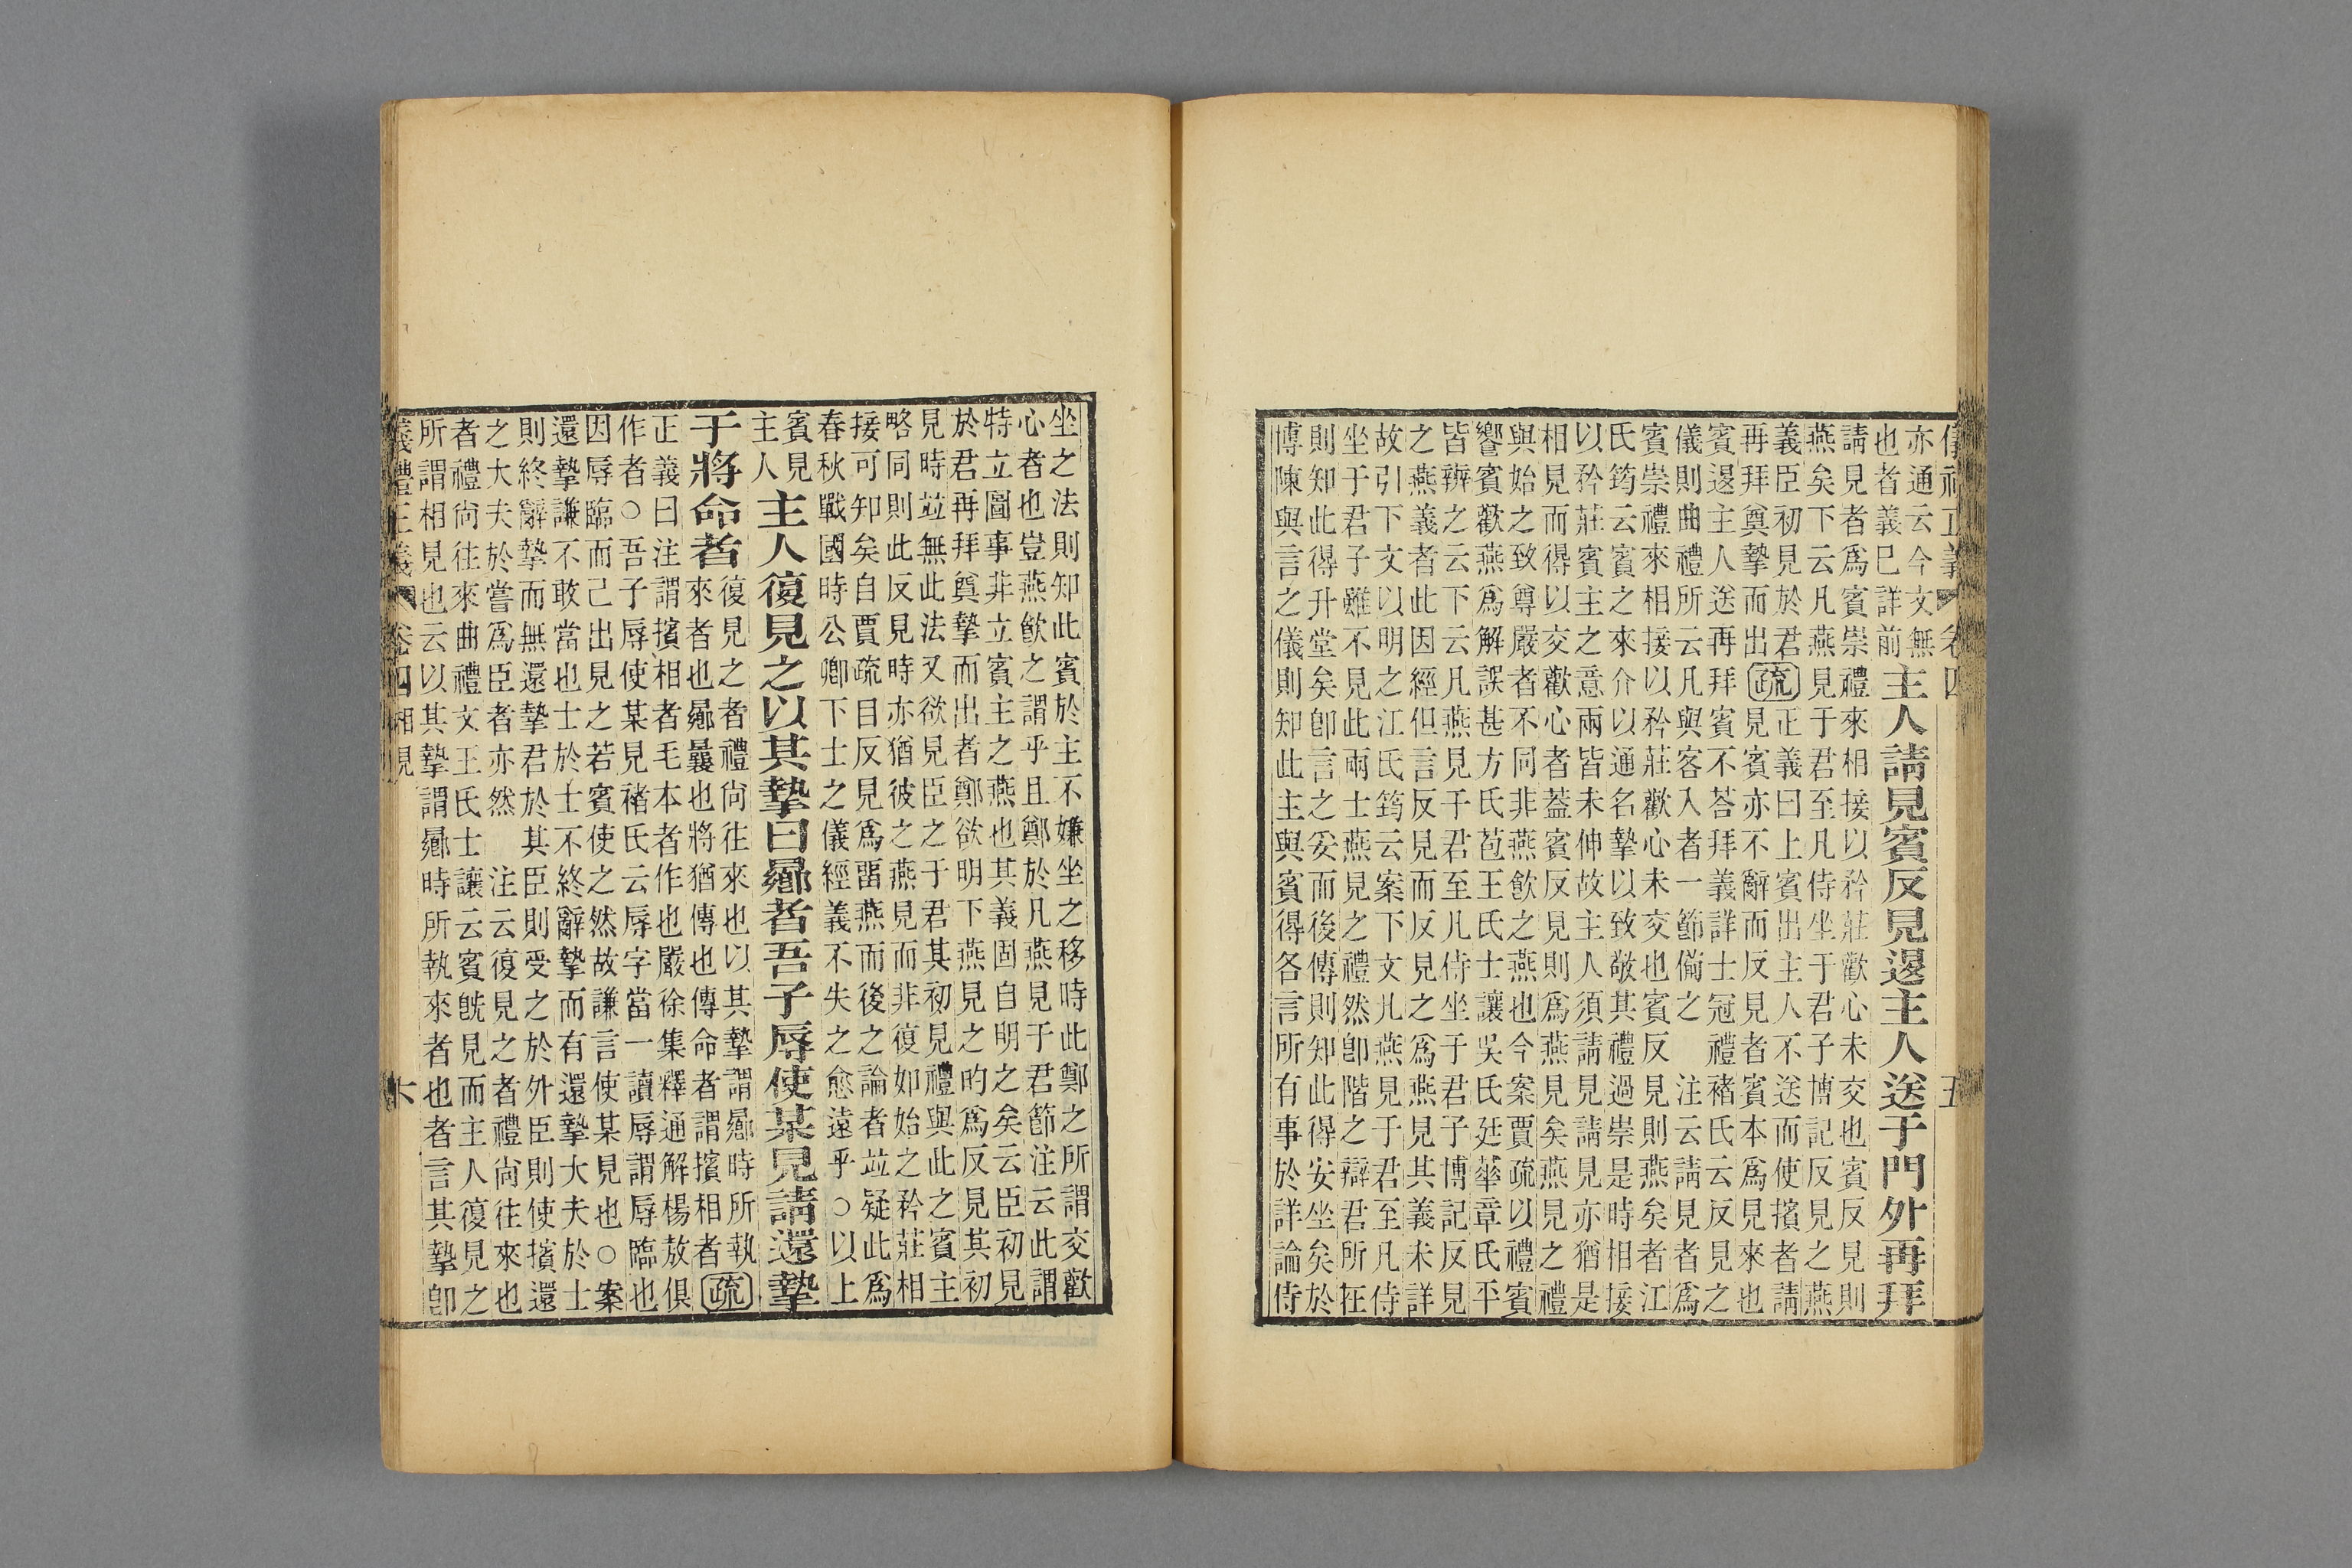 儀禮正義 卷四 五
亦通云今文無
也者義已詳前
主人請見賓反見退主人送于門外再拜
請見者爲賓崇禮來相接以矜莊歡心未交也賓反見則
燕矣下云凡燕見于君至凡侍坐于君子博記反見之燕
義臣初見於君
再拜奠摯而出
疏
正義曰上賓出主人不送而使擯者請
見賓亦不辭而反見者賓本爲見來也
賓退主人送再拜賓不荅拜義詳士冠禮褚氏云反見之
儀則曲禮所云凡與客入者一節備之 注云請見者爲
賓崇禮來相接以矜莊歡心未交也賓反見則燕矣者江
氏筠云賓之來介以通名摯以致敬其禮過崇是時相接
以矜莊賓主之意兩皆未伸故主人須請見請見亦猶是
相見而得以交歡心者蓋賓反見則爲燕見矣燕見之禮
與始之致尊嚴者不同非燕飮之燕也今案賈疏以禮賓
饗賓歡燕爲解誤甚方氏苞王氏士讓吳氏廷華章氏平
皆辨之云下云凡燕見于君至凡侍坐于君子博記反見
之燕義者此因經但言反見而反見之爲燕見其義未詳
故引下文以明之江氏筠云案下文凡燕見于君至凡侍
坐于君子雖不見此兩士燕見之禮然卽階之辯君所在
則知此得升堂矣卽言之妥而後傳則知此得安坐矣於
博陳與言之儀則知此主與賓得各言所有事於詳論侍
坐之法則知此賓於主不嫌坐之移時此鄭之所謂交歡
心者也豈燕飮之謂乎且鄭於凡燕見于君節注云此謂
特立圖事非立賓主之燕也其義固自明之矣云臣初見
於君再拜奠摯而出者鄭欲明下燕見之旳爲反見其初
見時並無此法又欲見臣之于君其初見禮與此之賓主
略同則此反見時亦猶彼之燕見而非復如始之矜莊相
接可知矣自賈疏目反見爲畱燕而後之論者並疑此爲
春秋戰國時公卿下士之儀經義不失之愈遠乎○以上
賓見
主人
主人復見之以其摯曰曏者吾子辱使某見請還摯
于將命者
復見之者禮尙往來也以其摯謂曏時所執
來者也曏曩也將猶傳也傳命者謂擯相者
疏
正義曰注謂擯相者毛本者作也嚴徐集釋通解楊敖俱
作者○吾子辱使某見褚氏云辱字當一讀辱謂辱臨也
因辱臨而己出見之若賓使之然故謙言使某見也○案
還摯謙不敢當也士於士不終辭摯而有還摯大夫於士
則終辭摯而無還摯君於其臣則受之於外臣則使擯還
之大夫於嘗爲臣者亦然 注云復見之者禮尙往來也
者禮尙往來曲禮文王氏士讓云賓旣見而主人復見之
所謂相見也云以其摯謂曏時所執來者也者言其摯卽
儀禮正義 卷四 相見 六